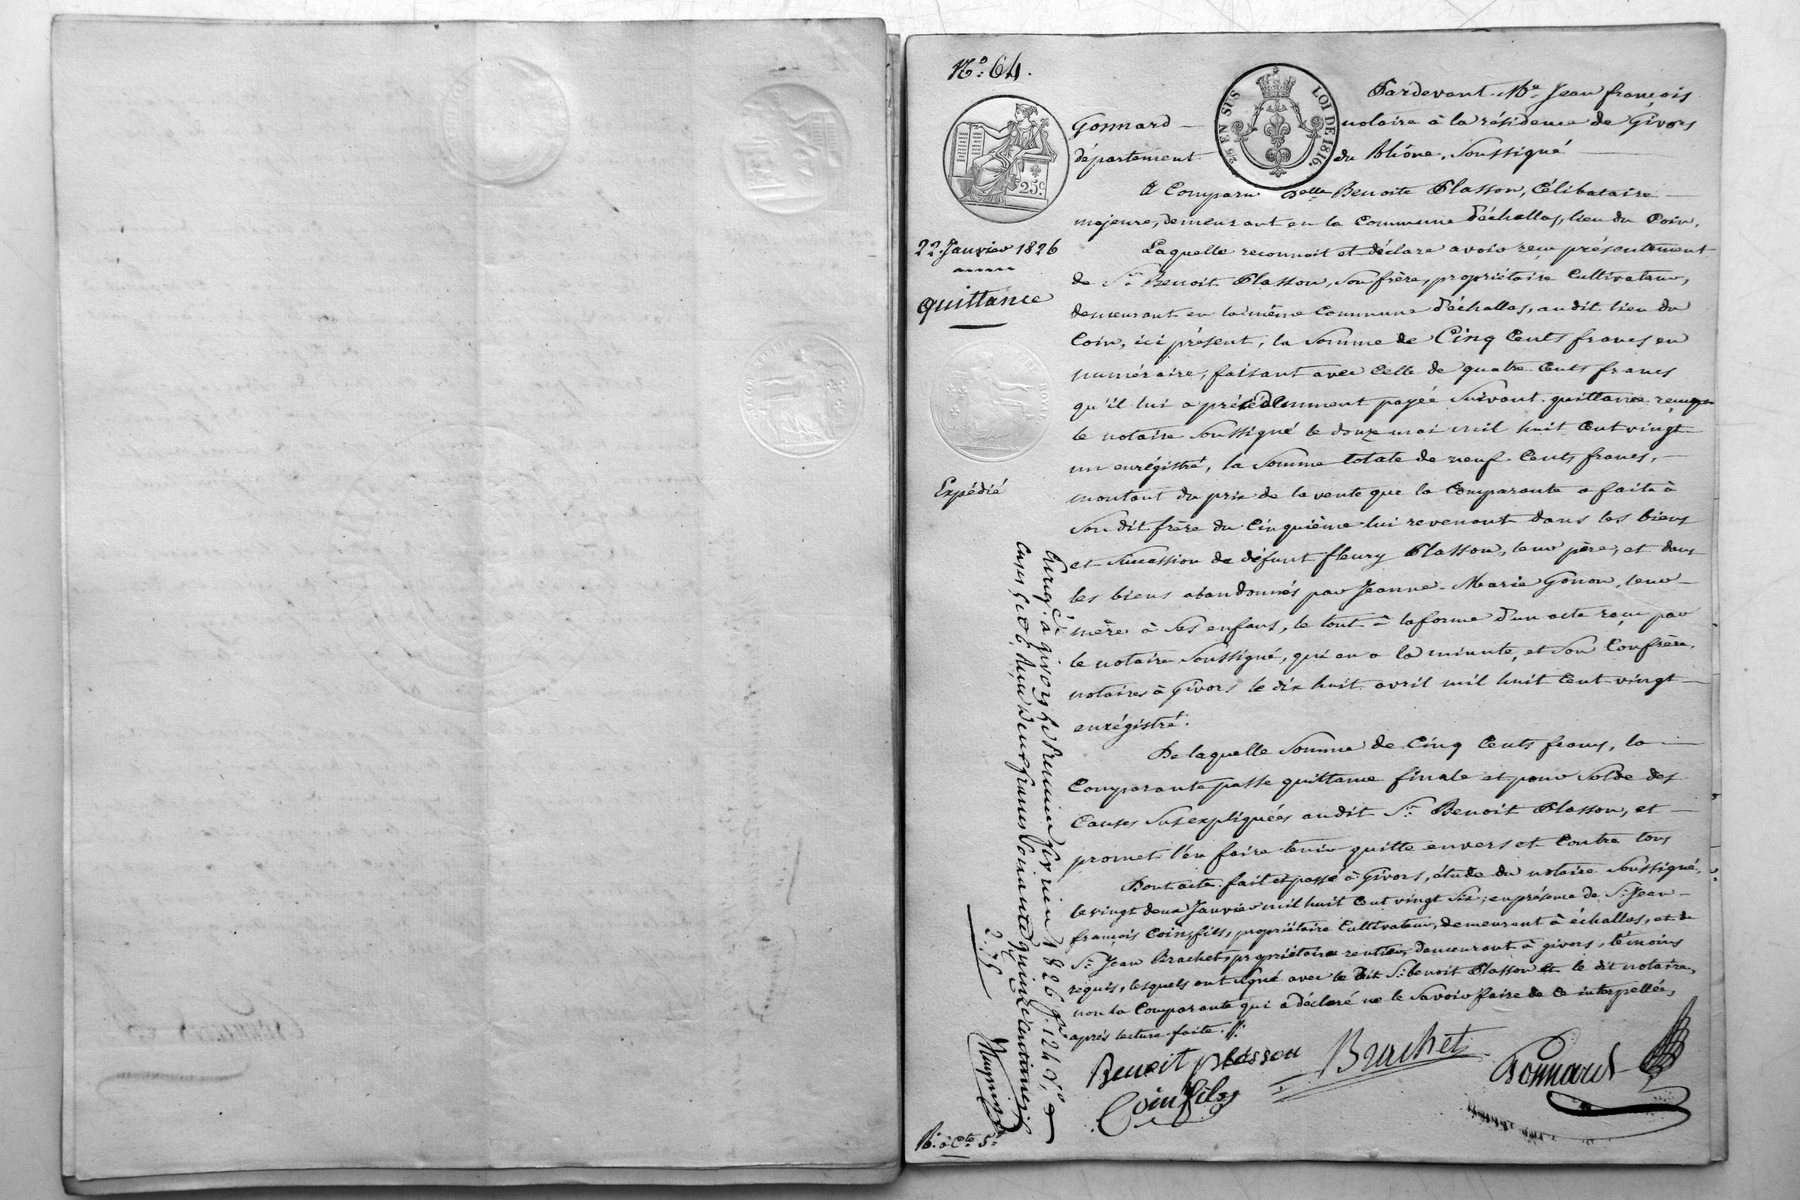 N.° 64.
25 EN SUS LOI DE 1816.
25 c.
Pardevant M.e Jean françois
Gonnard — notaire à la résidence de Givors
département du Rhône, Soussigné —
A Comparu D.elle Benoite Plasson, Célibataire —
majeure, demeurant en la Commune d'échallas, lieu du Coin.
22 Janvier 1826
Laquelle reconnoit et déclare avoir reçu présentement
de S.r Benoit Plasson, Son frère, propriétaire Cultivateur,
quittance
demeurant en la même Commune d'échallas, audit lieu du
Coin, ici présent, la Somme de Cinq Cents francs en
numéraire, faisant avec Celle de quatre Cents francs
qu'il lui a précédemment payée Suivant quittance reçue par
le notaire Soussigné le douze mai mil huit Cent vingt
un enrégistré, la Somme totale de neuf Cents francs, —
Expédié
montant du prix de la vente que la Comparante a faite à
Son dit frère du Cinquième lui revenant dans les biens
et Succession de défunt fleury Plasson, leur père, et dans
les biens abandonnés par Jeanne-Marie Gonon, leur —
mère à Ses enfans, le tout à la forme d'un acte reçu par
le notaire Soussigné, qui en a la minute, et Son Confrère,
notaires à Givors le dix huit avril mil huit Cent vingt —
enrégistré.
De laquelle Somme de Cinq Cents francs, la —
Comparante passe quittance finale et pour Solde des
Causes Sus expliquées audit S.r Benoit Plasson, et —
promet l'en faire tenir quitte envers et Contre tous
Dont acte fait et passé à Givors, étude du notaire Soussigné,
le vingt deux Janvier mil huit Cent vingt Six; en présence de S.r Jean —
françois Coin fils, propriétaire Cultivateur, demeurant à échallas, et de
S.r Jean Brachet, propriétaire rentier, demeurant à givors, témoins
requis, lesquels ont Signé avec le dit S.r benoit Plasson et le dit notaire,
non la Comparante qui a déclaré ne le Savoir faire de Ce interpellée,
après lecture faite.
Benoit plasson
Brachet
Gonnard
Coin fils
Enreg. à givors le Premier fevrier 1826 f.° 124 v.°
Cases 5 et 6 Reçu deux francs Cinquante quinze Centimes
2.75
R. à Cte 5.